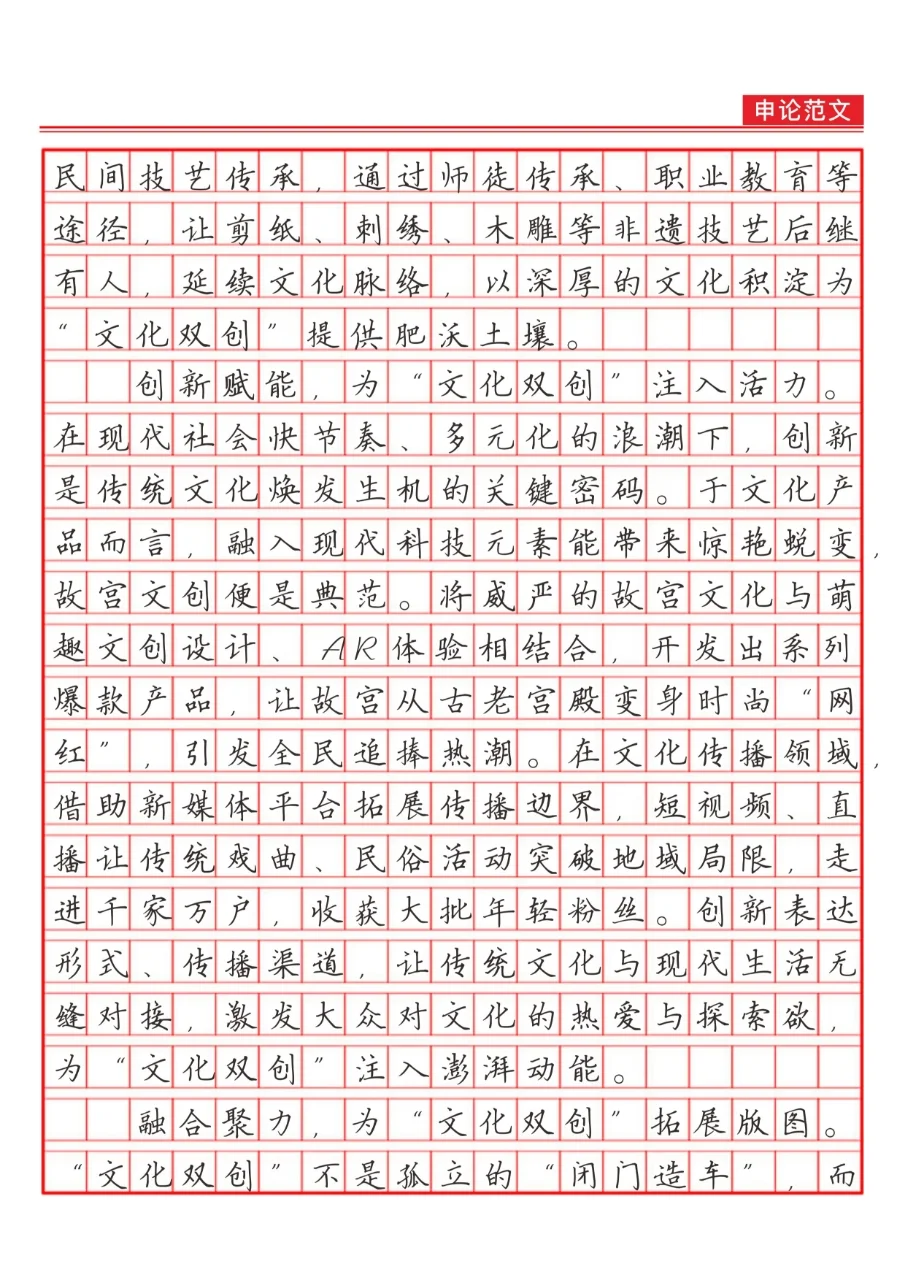 申论范文
民间技艺传承，通过师徒传承、职业教育等
途径，让剪纸、刺绣、木雕等非遗技艺后继
有人，延续文化脉络，以深厚的文化积淀为
“文化双创”提供肥沃土壤。
创新赋能，为“文化双创”注入活力。
在现代社会快节奏、多元化的浪潮下，创新
是传统文化焕发生机的关键密码。于文化产
品而言，融入现代科技元素能带来惊艳蜕变，
故宫文创便是典范。将威严的故宫文化与萌
趣文创设计、AR体验相结合，开发出系列
爆款产品，让故宫从古老宫殿变身时尚“网
红”，引发全民追捧热潮。在文化传播领域，
借助新媒体平台拓展传播边界，短视频、直
播让传统戏曲、民俗活动突破地域局限，走
进千家万户，收获大批年轻粉丝。创新表达
形式、传播渠道，让传统文化与现代生活无
缝对接，激发大众对文化的热爱与探索欲，
为“文化双创”注入澎湃动能。
融合聚力，为“文化双创”拓展版图。
“文化双创”不是孤立的“闭门造车”，而